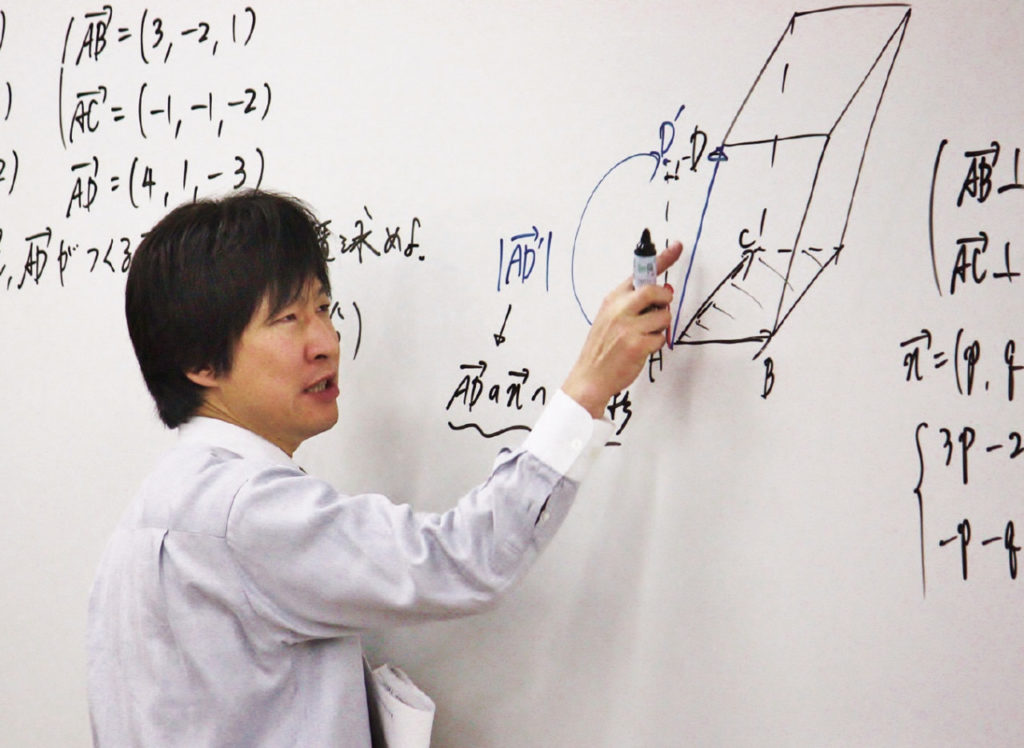 AB = (3, -2, 1)
AC = (-1, -1, -2)
AD = (4, 1, -3)
2)
, ADがつくる
を求めよ.
|AD'|
ADのnへ
D'
D
C
A
B
AB⊥
AC⊥
n = (p, q
3p - 2
-p - q